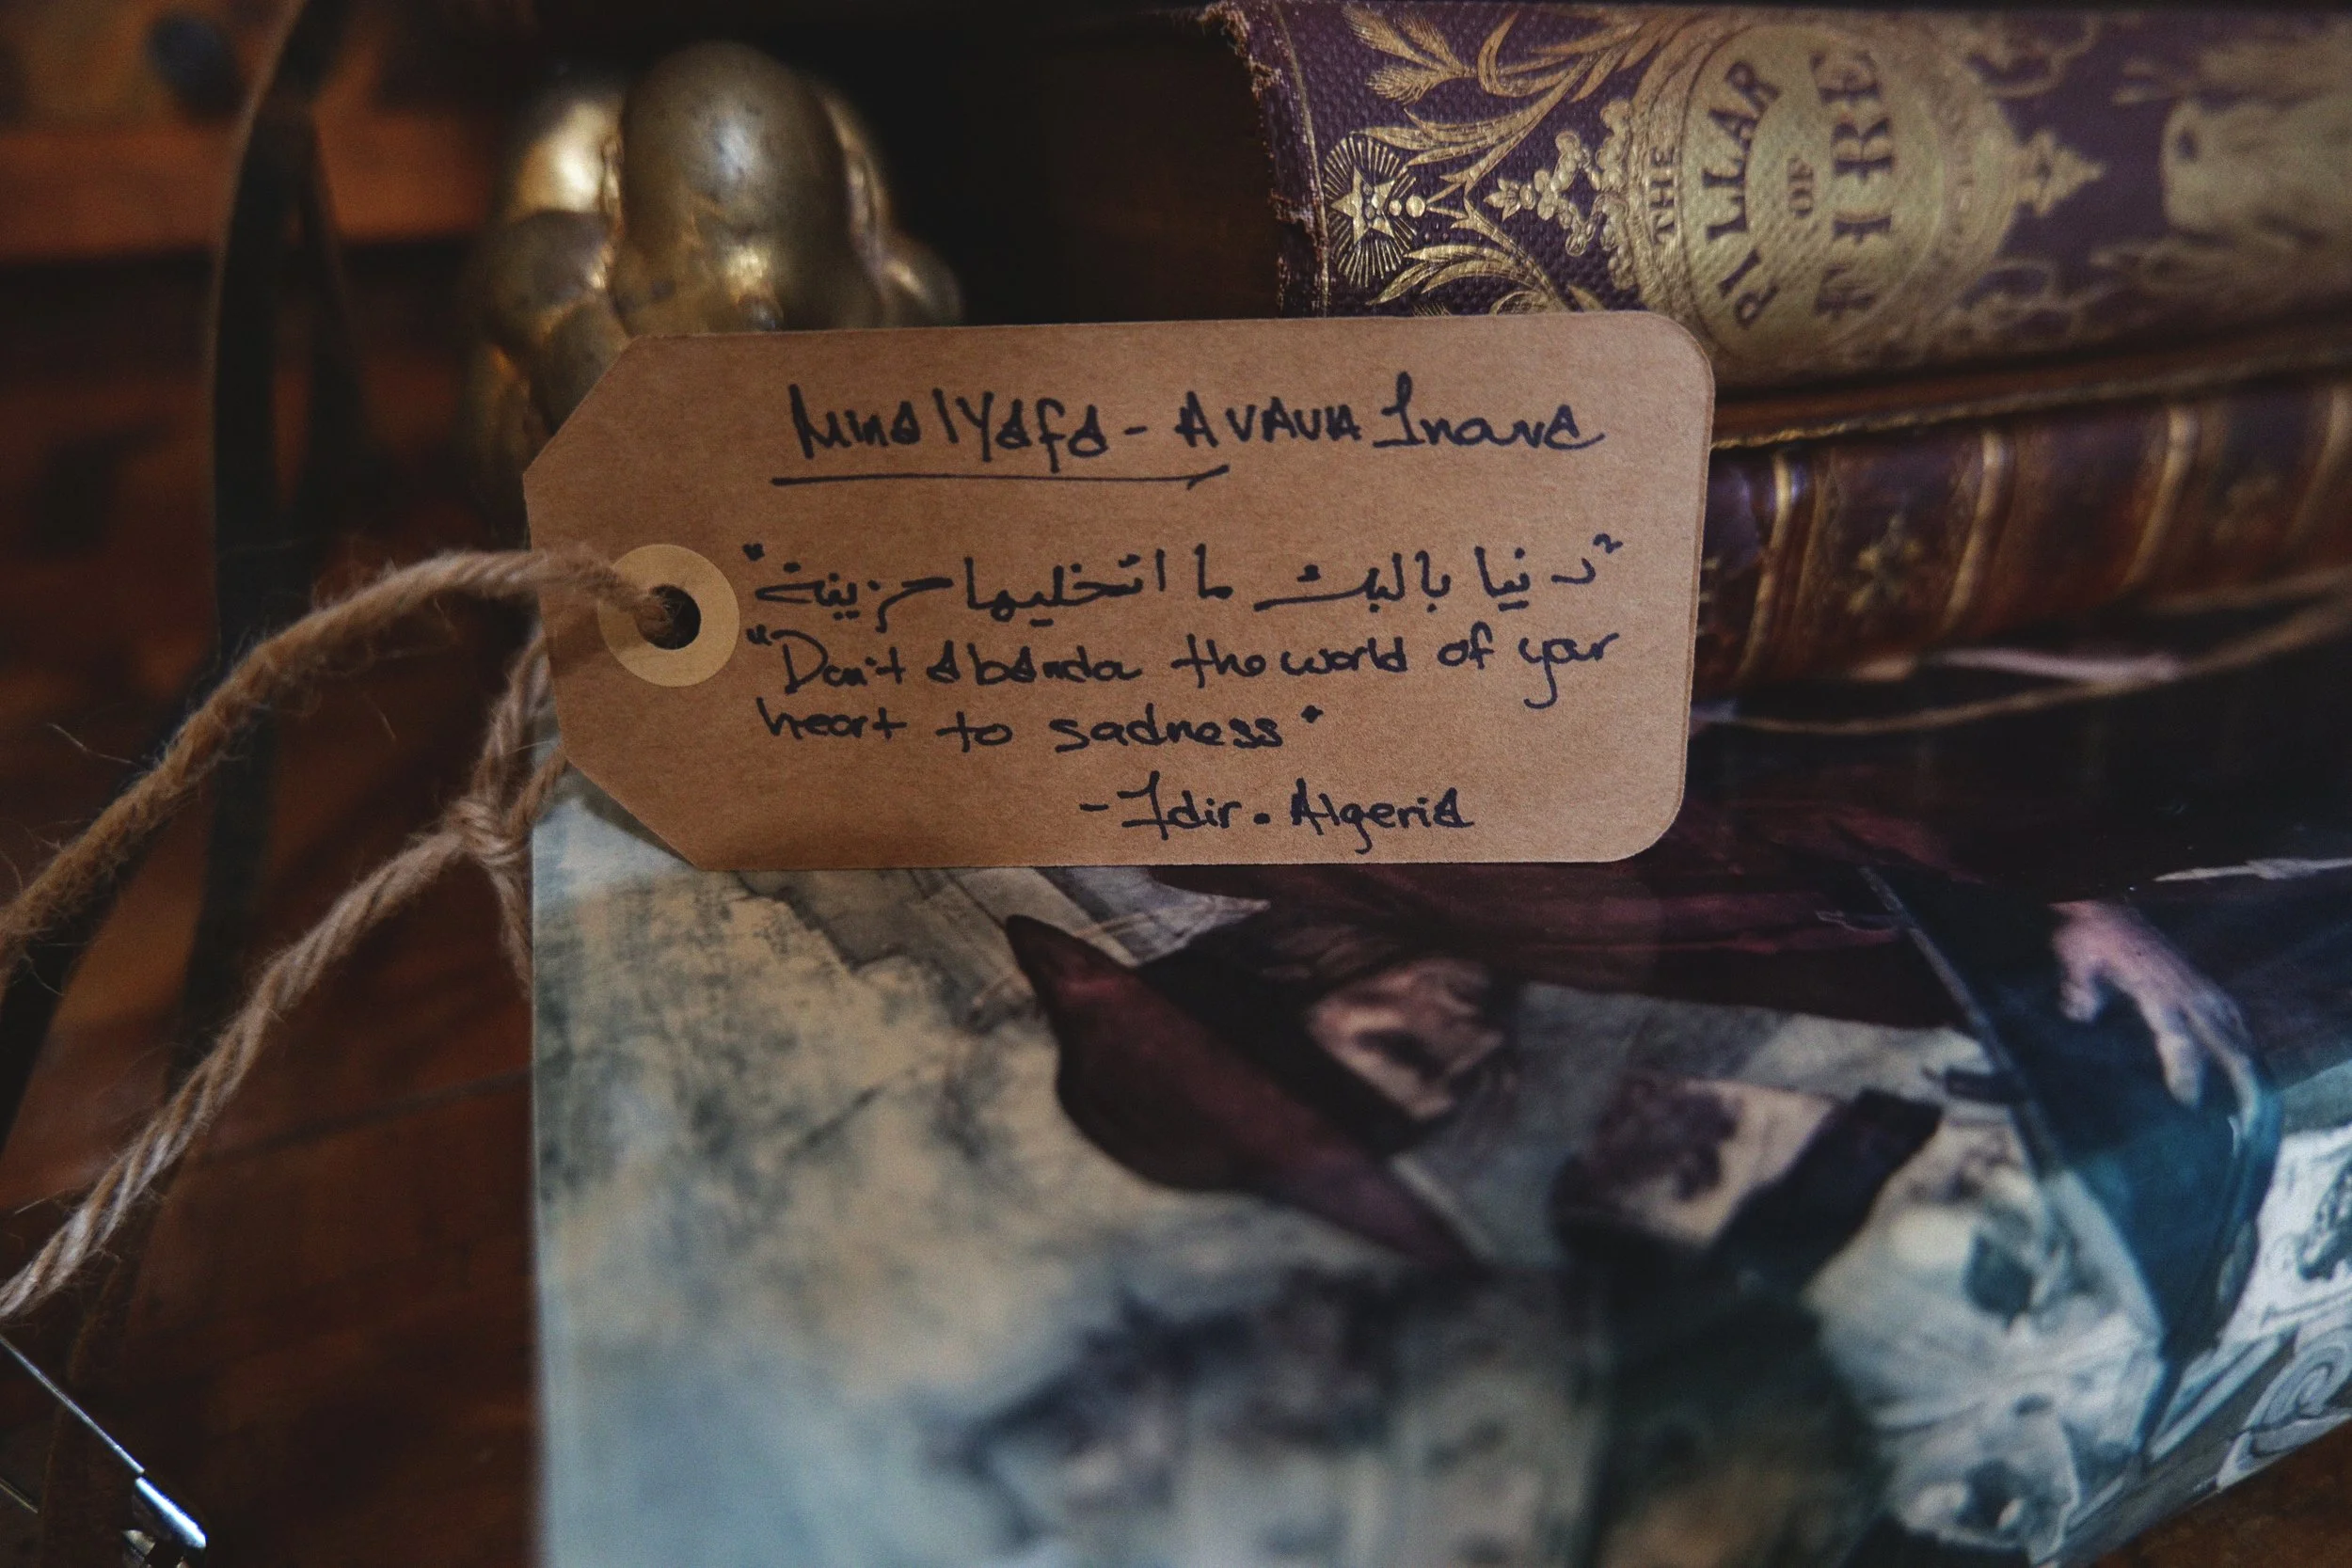 THE PILLAR OF FIRE
Mina lYafa - AVAVA Inava
"دنيا بالبك ما اتخليها حزينة"
"Don't abanda the world of your
heart to sadness"
-Idir. Algeria